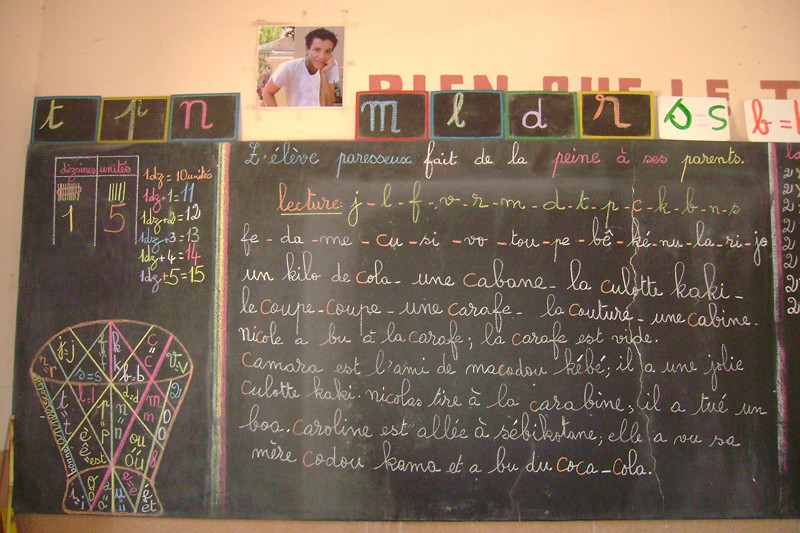 BIEN QUE LE T
t p n m l d r s=s b=
L'élève paresseux fait de la peine à ses parents.
dizaines unités
1 5
1dz = 10 unités
1dz + 1 = 11
1dz + 2 = 12
1dz + 3 = 13
1dz + 4 = 14
1dz + 5 = 15
lecture: j - l - f - v - r - m - d - t - p - c - k - b - n - s
fe - da - me - cu - si - vo - tou - pe - bê - ké - nu - la - ri - jo
un kilo de cola - une cabane - la culotte kaki -
le coupe-coupe - une carafe - la couture - une cabine.
nicole a bu à la carafe; la carafe est vide.
camara est l'ami de macodou kébé; il a une jolie
culotte kaki. nicolas tire à la carabine; il a tué un
boa. caroline est allée à sébikotane; elle a vu sa
mère codou kama et a bu du coca-cola.
r=r j=j k k c c v=v
s=s b=b
t t l=l d=d m m
p p n n o
ê è est ou où
i
é et